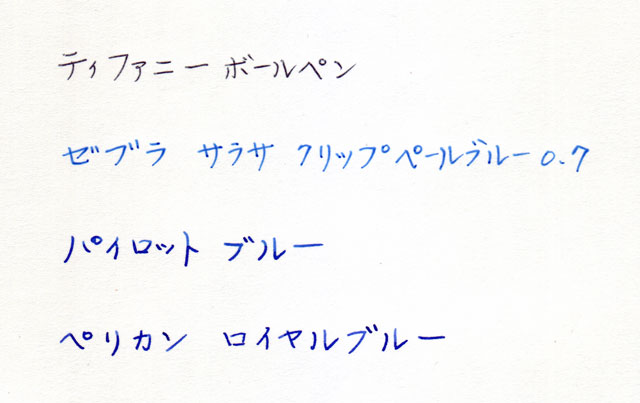 ティファニー ボールペン
ゼブラ サラサ クリップペールブルー 0.7
パイロット ブルー
ペリカン ロイヤルブルー